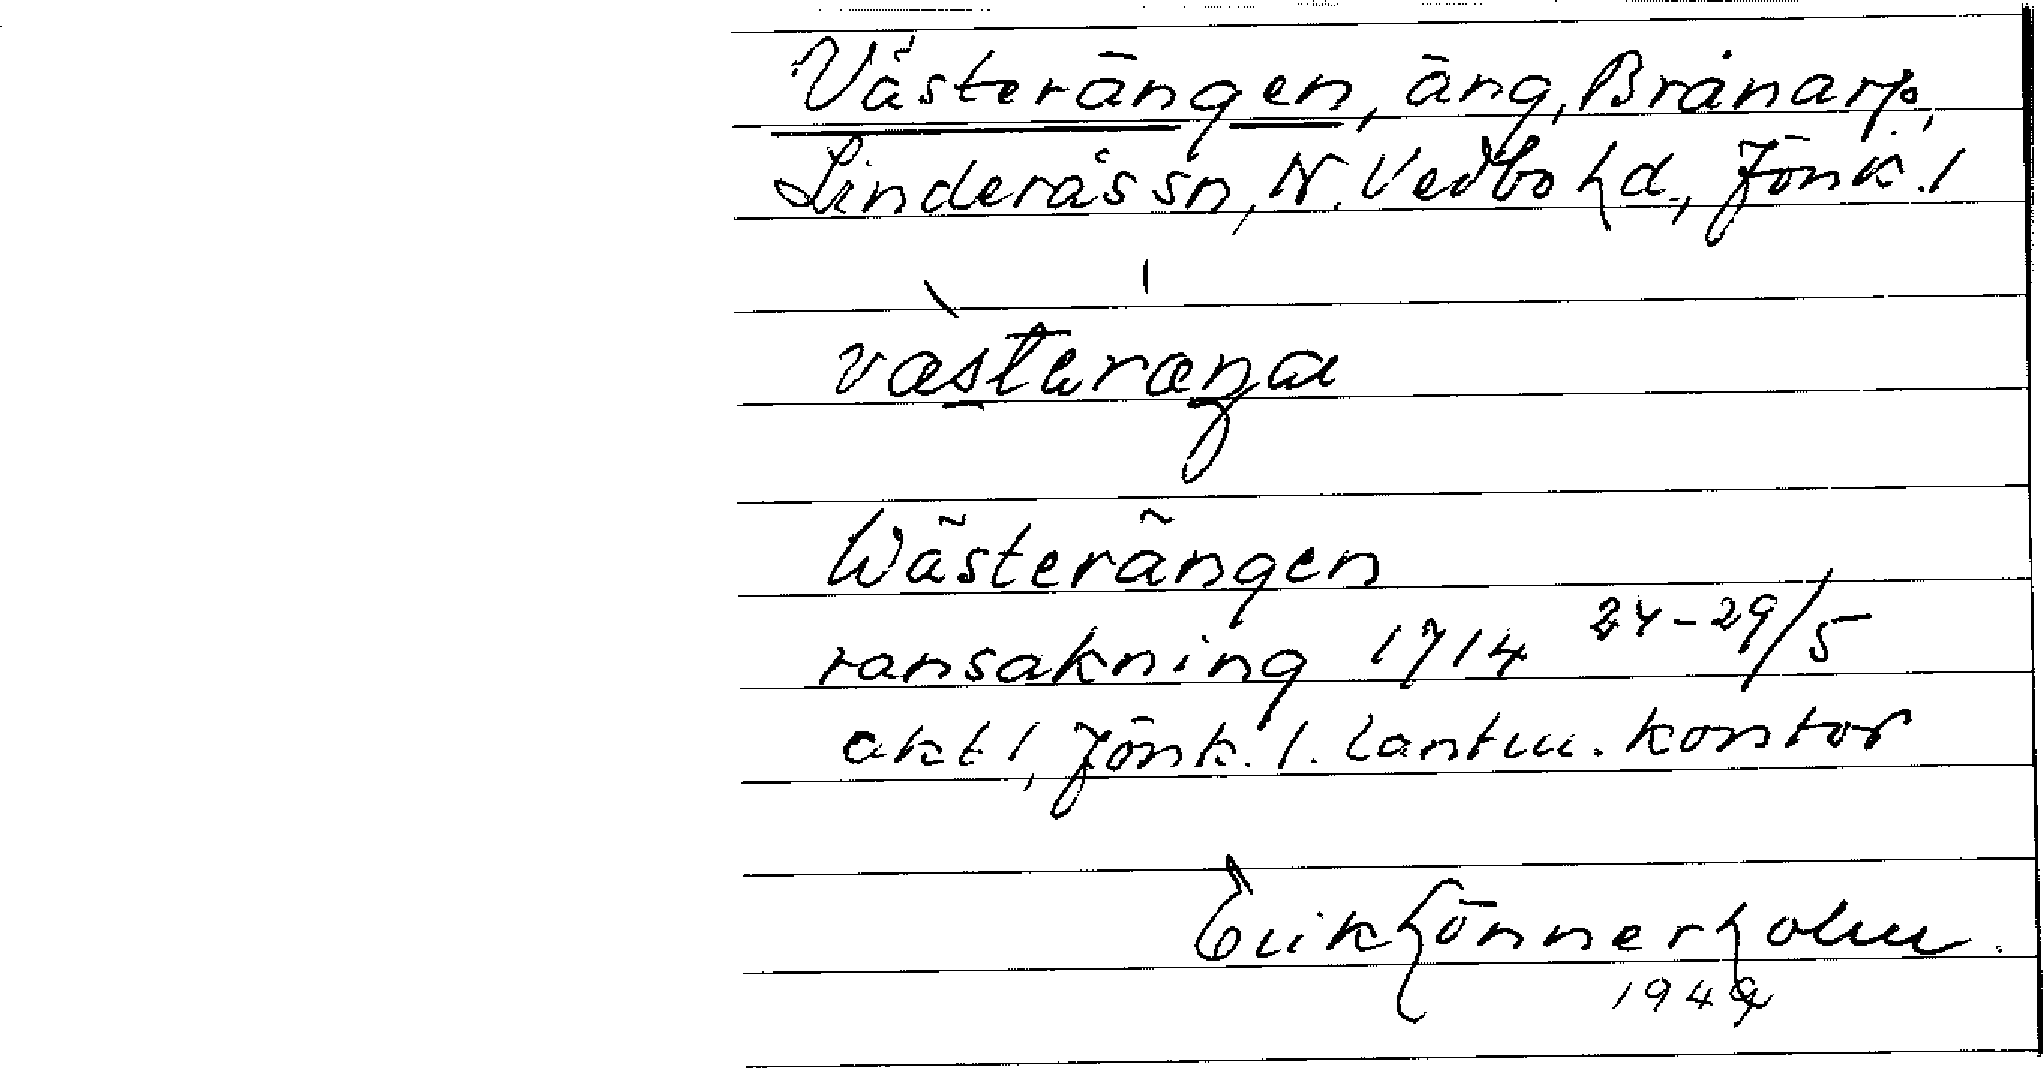 Västerängen, äng, Brånarp,
Linderås sn, N. Vedbo hd, Jönk. l
væstəræŋa
Wästerängen
ransakning 1714 24-29/5
akt 1, Jönk. l. lantm. kontor
Erik Lönnerholm.
1949